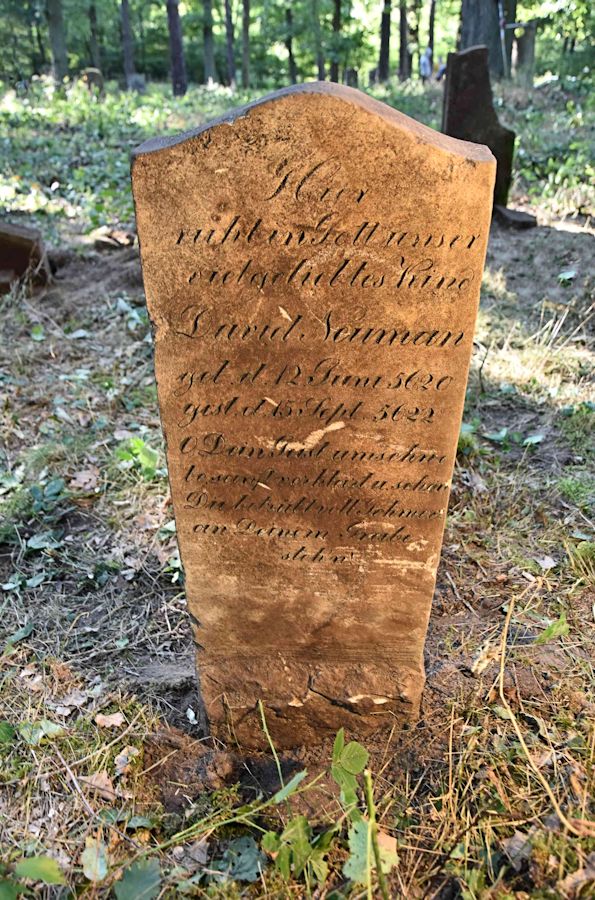 Hier
ruht in Gott unser
vielgeliebtes Kind
David Neuman
geb. d. 12 Juni 5620
gest. d. 15 Sept. 5622
O Dein Geist umschw
be sanft verklärt u. schau
Du betrübt voll Schmerz
an Deinem Grabe
stehn